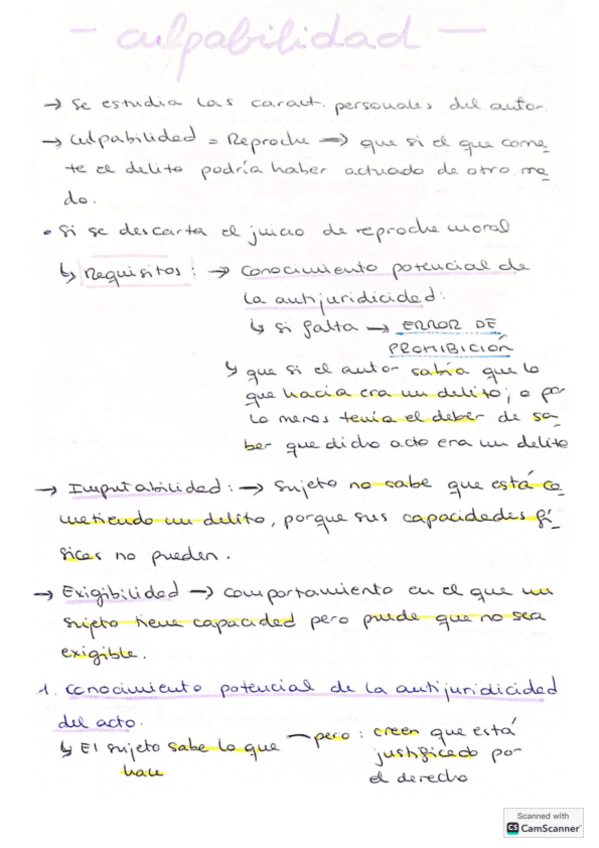 - culpabilidad -
→ Se estudia las caract. personales del autor.
→ Culpabilidad = Reproche → que si el que come-
te el delito podría haber actuado de otro mo-
do.
• Si se descarta el juicio de reproche moral
↳ Requisitos: → Conocimiento potencial de
la antijuridicidad:
↳ si falta → ERROR DE
PROHIBICIÓN
↳ que si el autor sabía que lo
que hacía era un delito; o por
lo menos tenía el deber de sa-
ber que dicho acto era un delito
→ Imputabilidad: → Sujeto no sabe que está co-
metiendo un delito, porque sus capacidades fí-
sicas no pueden.
→ Exigibilidad → comportamiento en el que un
sujeto tiene capacidad pero puede que no sea
exigible.
1. Conocimiento potencial de la antijuridicidad
del acto.
↳ El sujeto sabe lo que — pero: creen que está
hace justificado por
el derecho
Scanned with
CS CamScanner